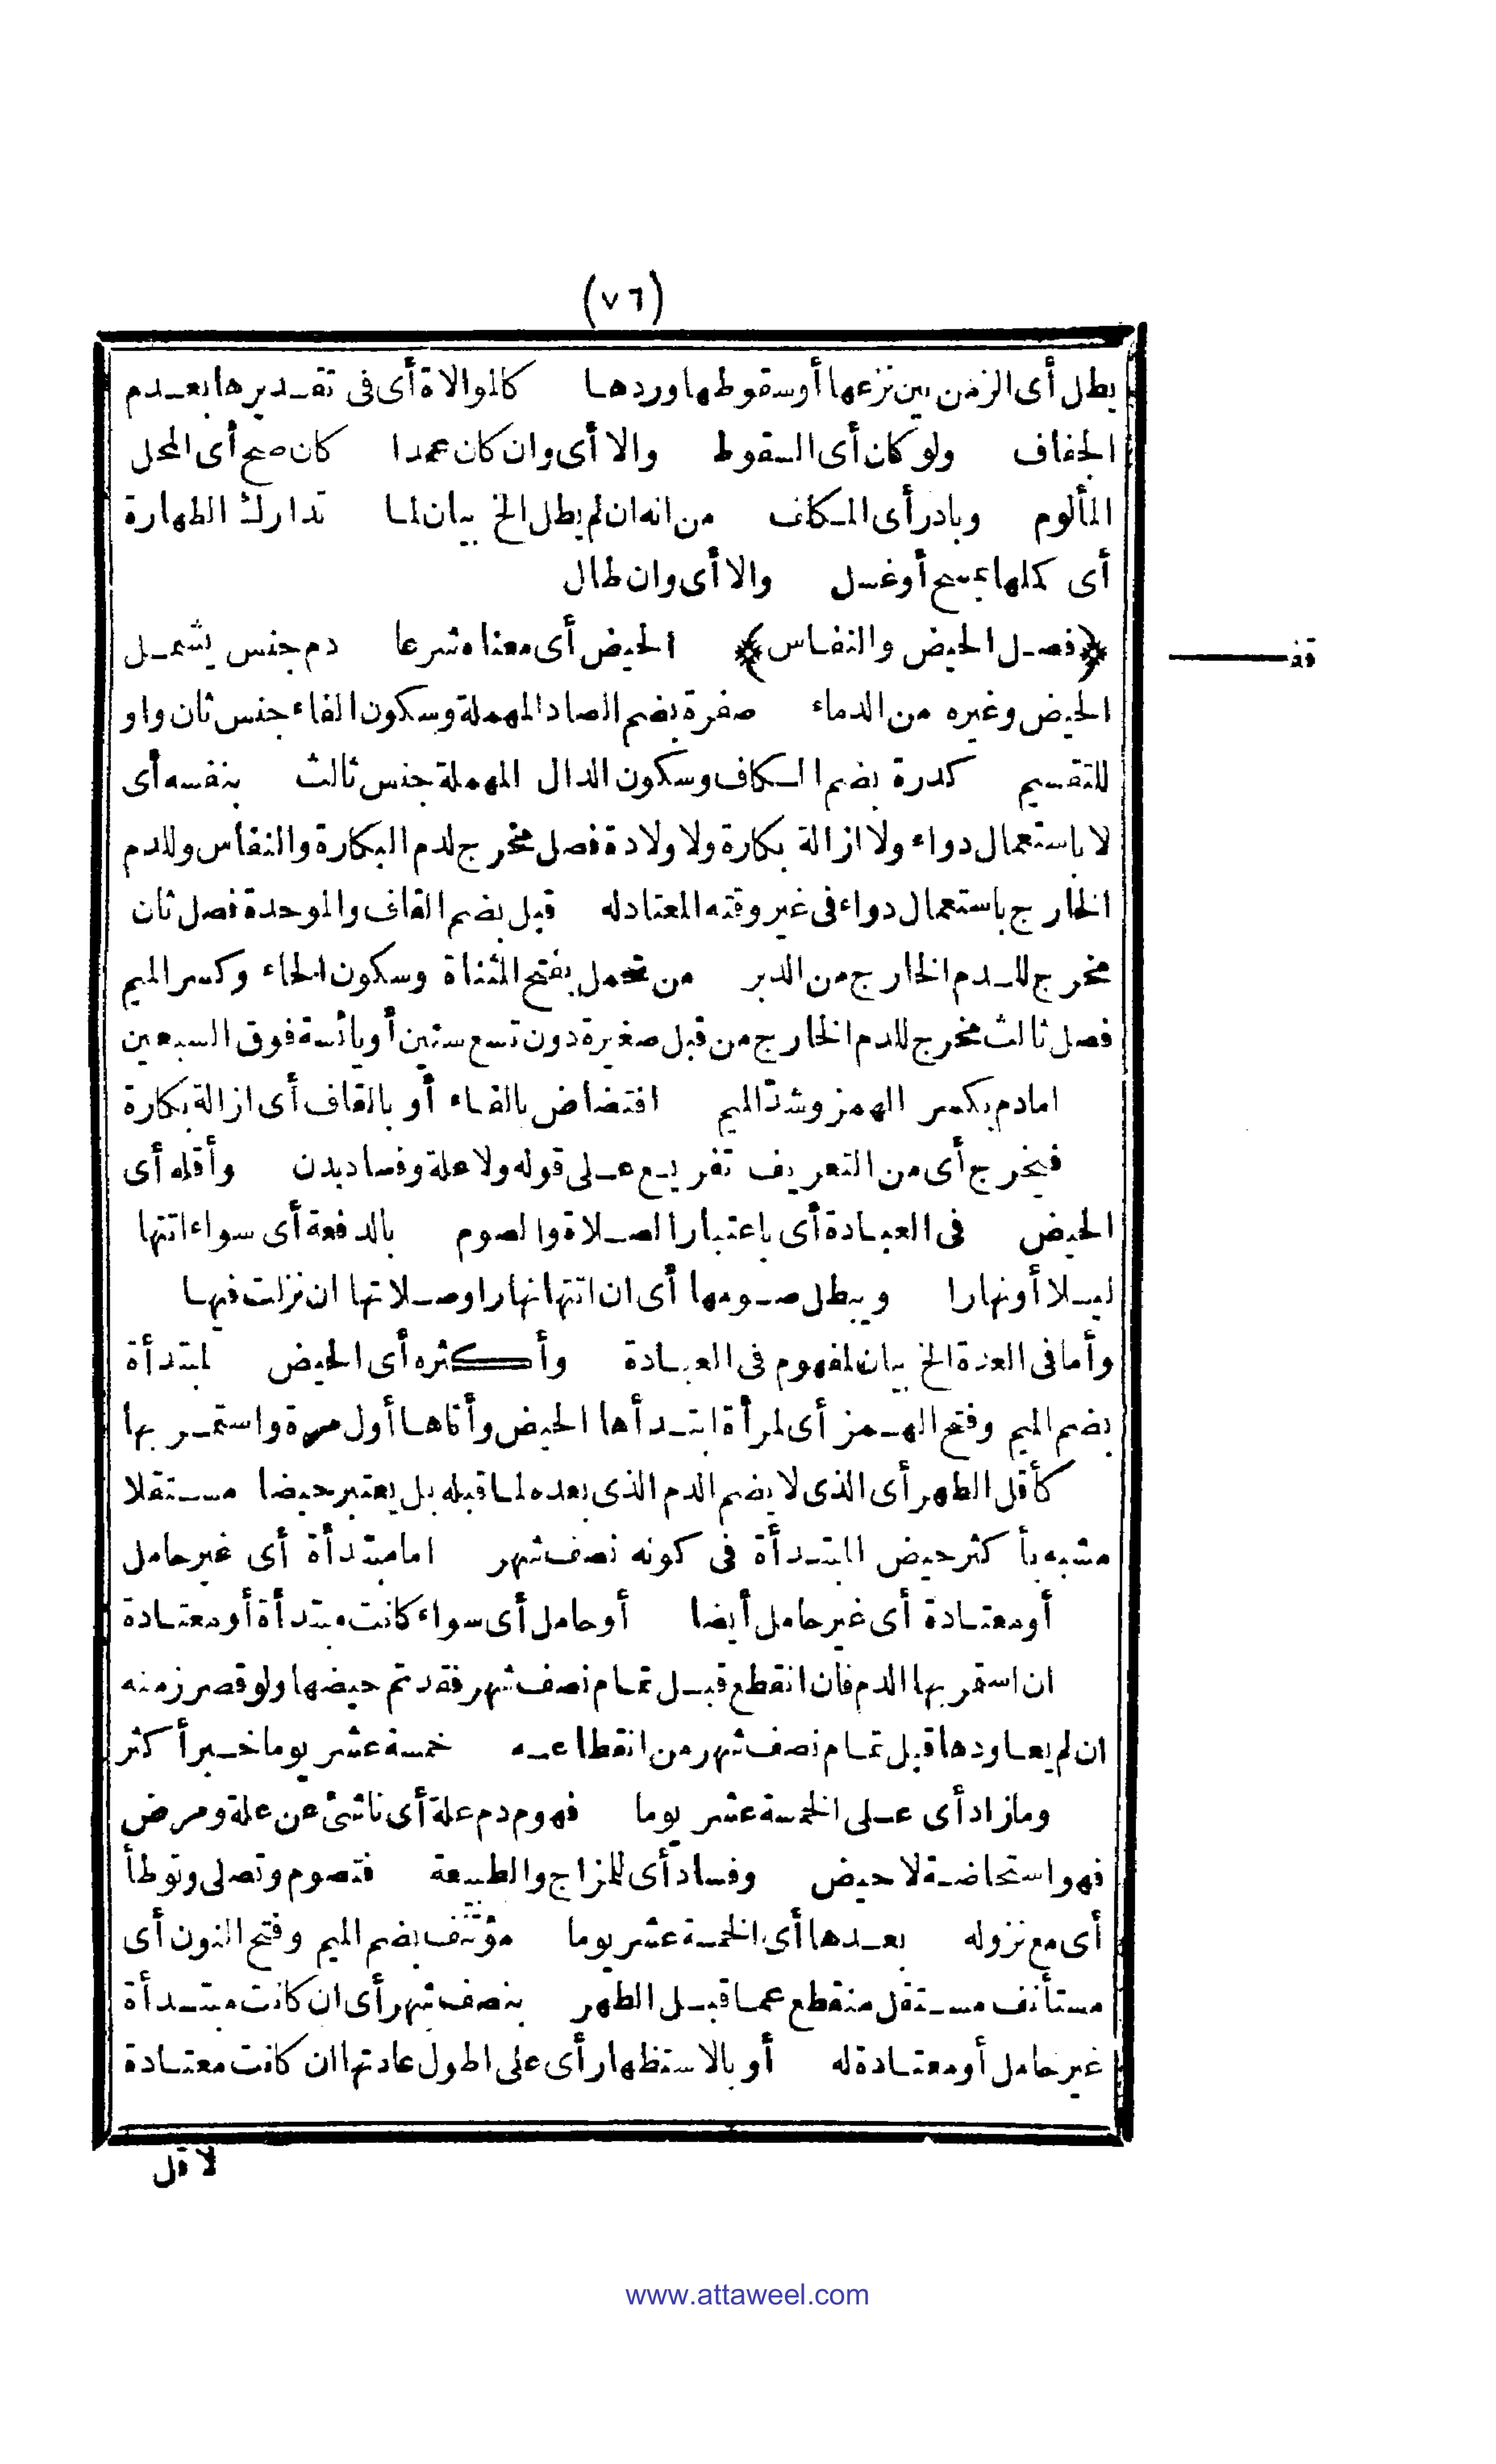 (٧٦)
يطل أى الزمن بين نزعها أو سقوطها وردها كالموالاة أى فى تقديرها بعدم
الجفاف ولو كان أى السقوط والا أى وان كان عمدا كان صح أى المحل
المألوم وبادر أى المكلف من انه ان لم يطل الخ بيان لما تدارك الطهارة
أى كلها بمسح أو غسل والا أى وان طال
﴿فصل الحيض والنفاس﴾ الحيض أى معناه شرعا دم جنس يشمل
قف
الحيض وغيره من الدماء صفرة بضم الصاد المهملة وسكون الفاء جنس ثان واو
للتقسيم كدرة بضم الكاف وسكون الدال المهملة جنس ثالث بنفسه أى
لا باستعمال دواء ولا ازالة بكارة ولا ولادة فصل مخرج لدم البكارة والنفاس وللدم
الخارج باستعمال دواء فى غير وقته المعتاد له قبل بضم القاف والموحدة فصل ثان
مخرج للدم الخارج من الدبر من تحمل بفتح المثناة وسكون الحاء وكسر الميم
فصل ثالث مخرج للدم الخارج من قبل صغيرة دون تسع سنين أو يائسة فوق السبعين
اما دم بكسر الهمز وشد الميم افتضاض بالفاء أو بالقاف أى ازالة بكارة
فيخرج أى من التعريف تفريع على قوله ولا علة وفساد بدن وأقله أى
الحيض فى العبادة أى باعتبار الصلاة والصوم بالدفعة أى سواء اتتها
ليلا أو نهارا ويبطل صومها أى ان اتتها نهارا وصلاتها ان نزلت فيها
وأما فى العدة الخ بيان لمفهوم فى العبادة وأكثره أى الحيض لمبتدأة
بضم الميم وفتح الهمز أى لمرأة ابتدأها الحيض وأتاها أول مرة واستمر بها
كأقل الطهر أى الذى لا يضم الدم الذى بعده لما قبله بل يعتبر حيضا مستقلا
مشبه بأكثر حيض المبتدأة فى كونه نصف شهر اما مبتدأة أى غير حامل
أو معتادة أى غير حامل أيضا أو حامل أى سواء كانت مبتدأة أو معتادة
ان استمر بها الدم فان انقطع قبل تمام نصف شهر فقد تم حيضها ولو قصر زمنه
ان لم يعاودها قبل تمام نصف شهر من انقطاعه خمسة عشر يوما خبر أكثر
وما زاد أى على الخمسة عشر يوما فهو دم علة أى ناشئ عن علة ومرض
فهو استحاضة لا حيض وفساد أى للمزاج والطبيعة فتصوم وتصلى وتوطأ
أى مع نزوله بعدها أى الخمسة عشر يوما مؤتنف بضم الميم وفتح النون أى
مستأنف مستقل منقطع عما قبل الطهر بنصف شهر أى ان كانت مبتدأة
غير حامل أو معتادة له أو بالاستظهار أى على اطول عادتها ان كانت معتادة
لاقل
www.attaweel.com